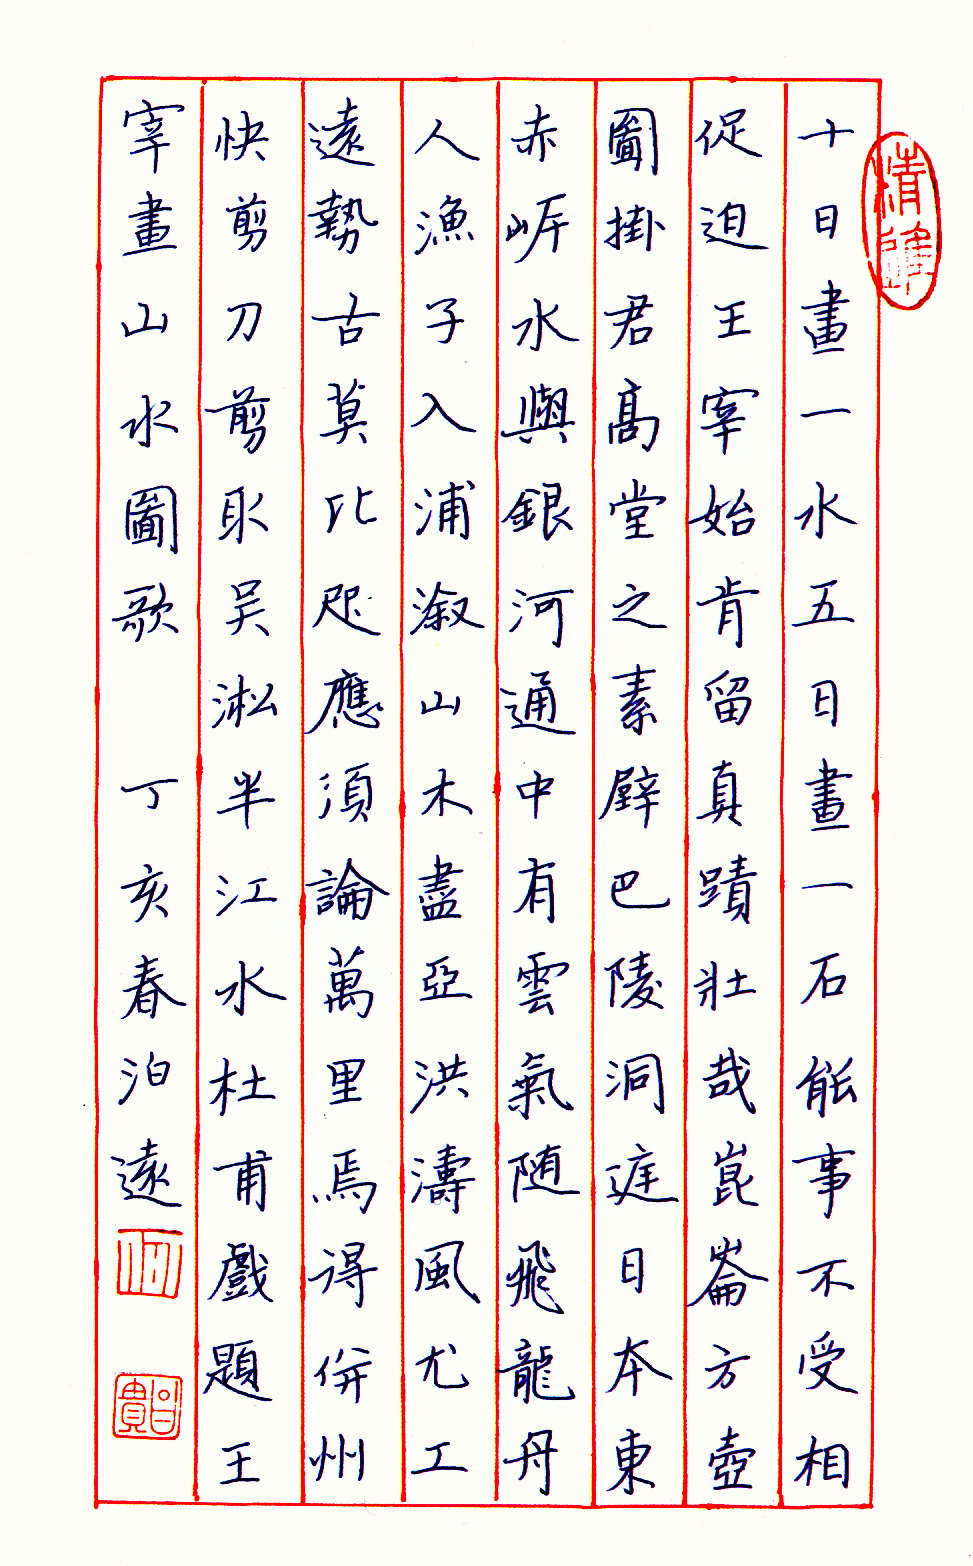 十日畫一水五日畫一石能事不受相
促迫王宰始肯留真蹟壯哉崑崙方壺
圖掛君高堂之素壁巴陵洞庭日本東
赤岸水與銀河通中有雲氣随飛龍舟
人漁子入浦溆山木盡亞洪濤風尤工
遠勢古莫比咫應須論萬里焉得併州
快剪刀剪取吴淞半江水杜甫戲題王
宰畫山水圖歌 丁亥春泊遠